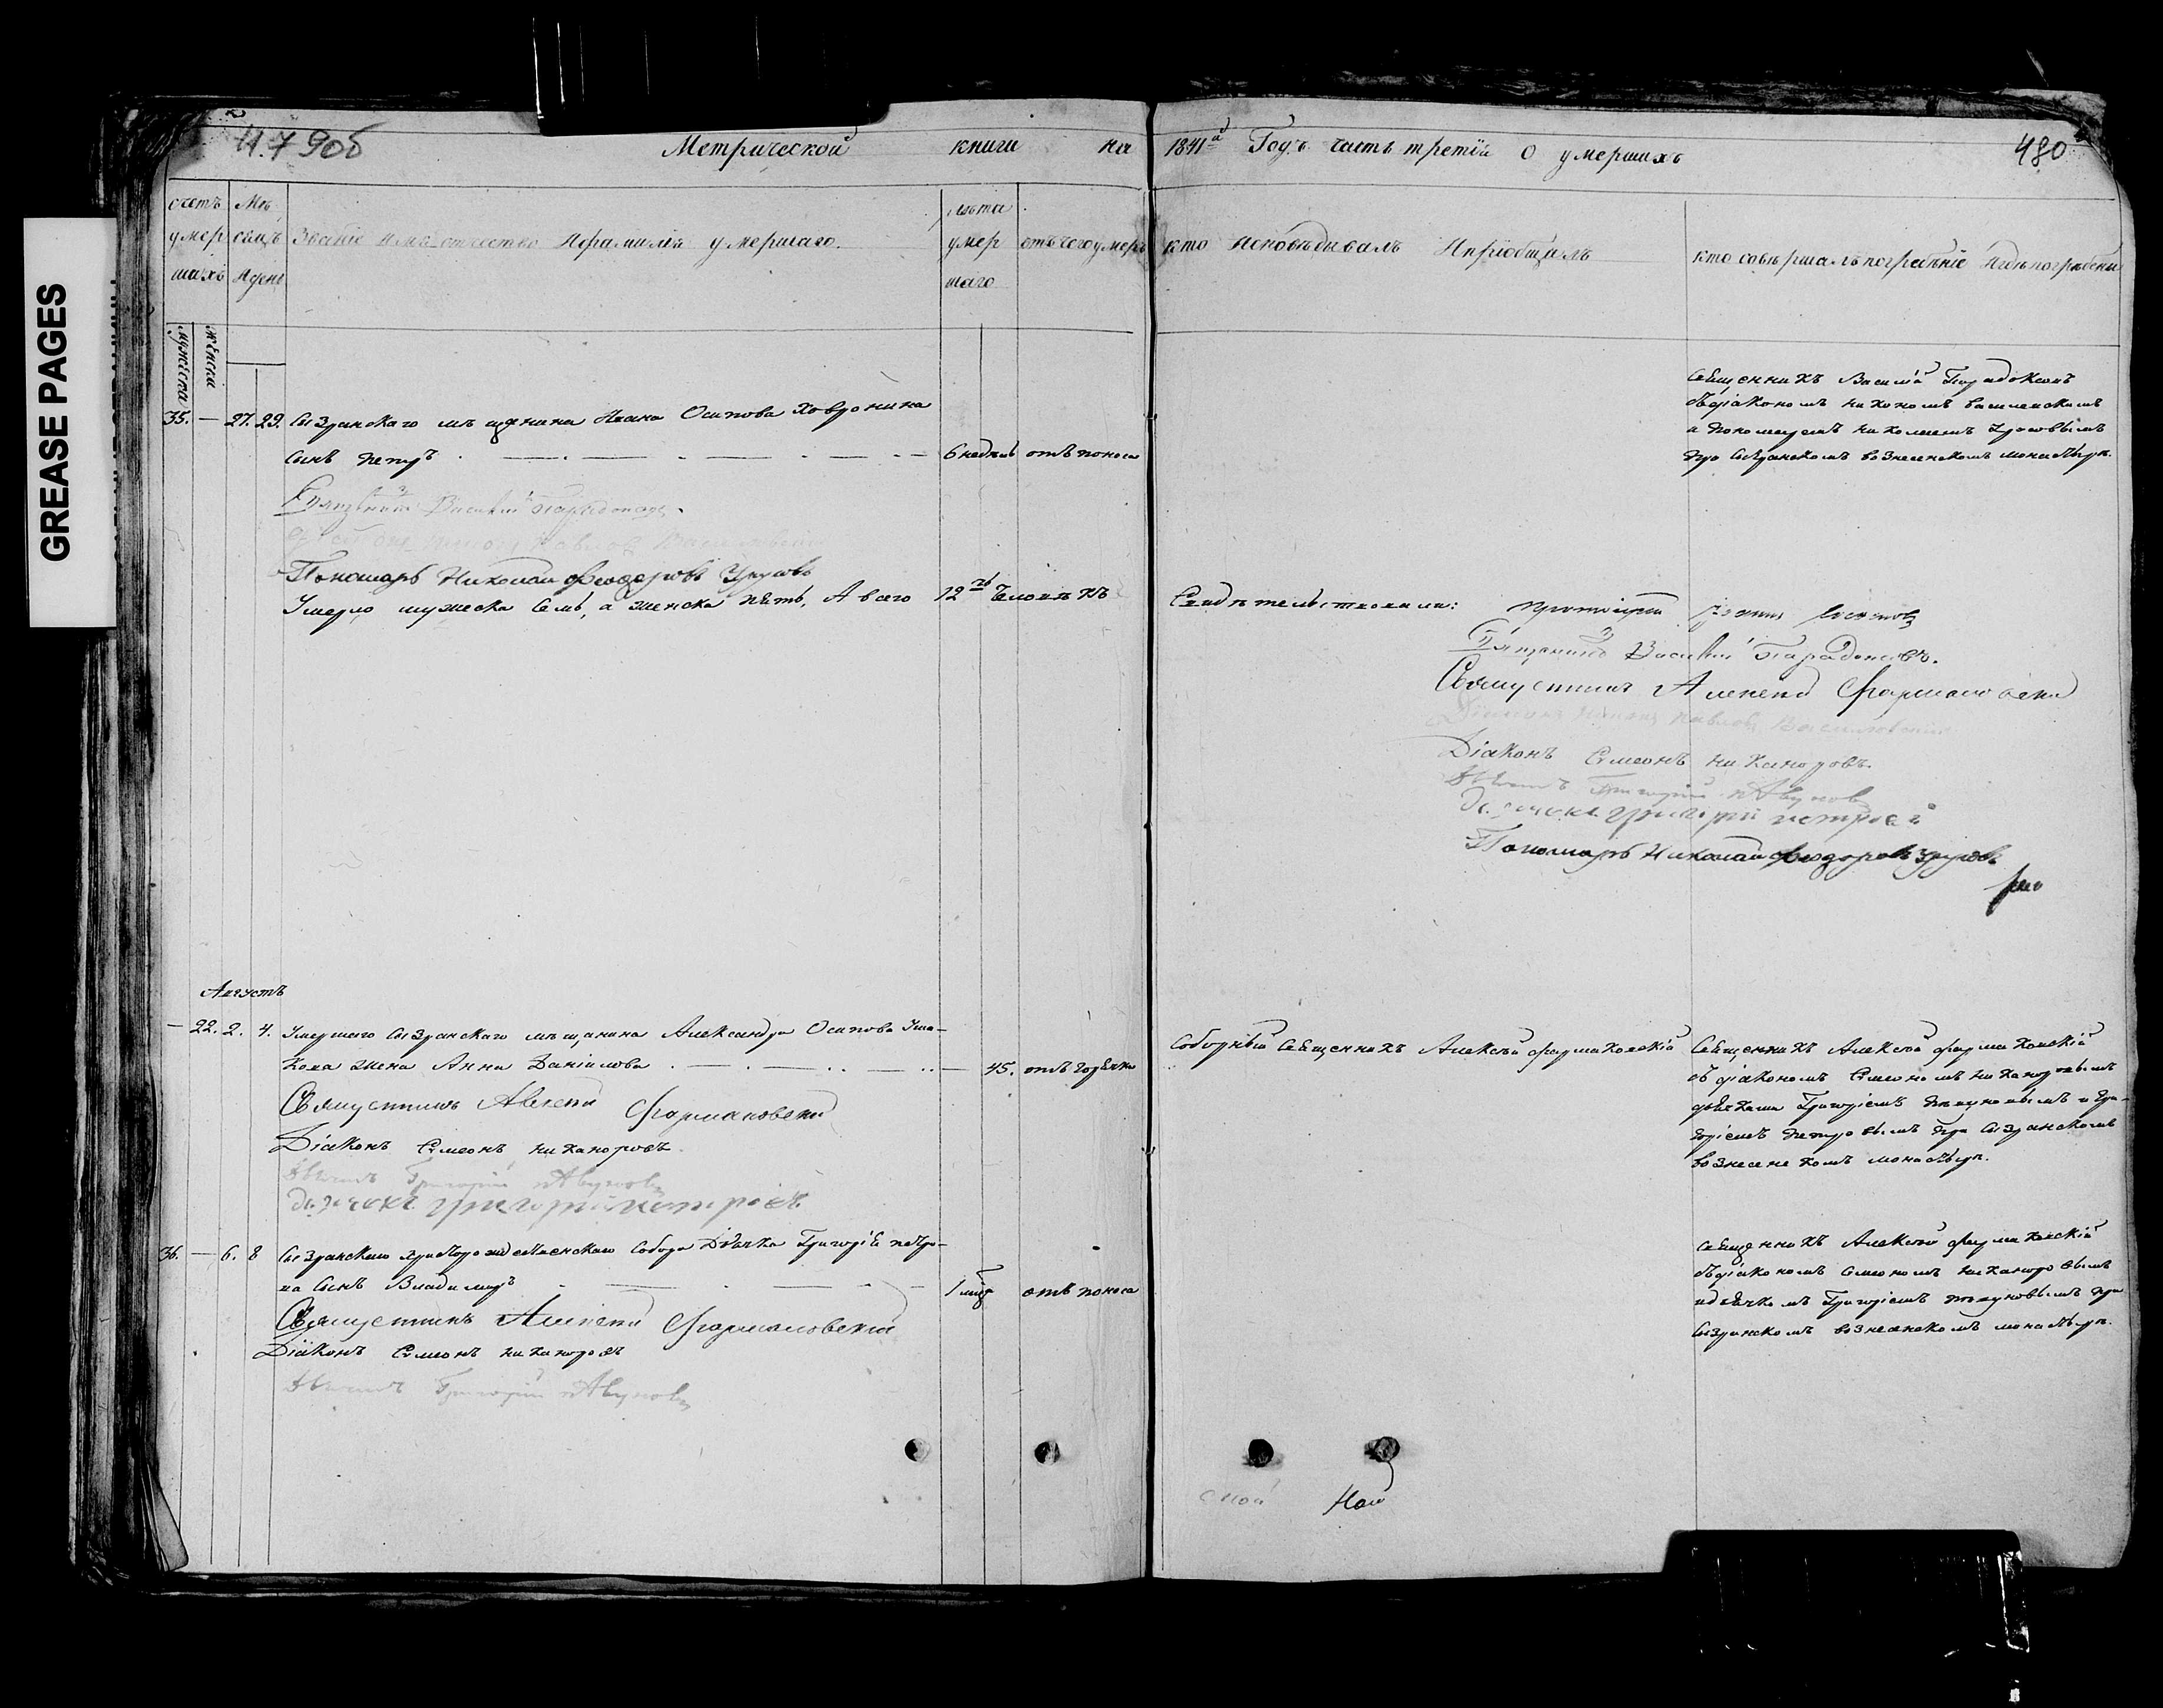 GREASE PAGES
Ч.7 90об
Метрической книги на 1841й Годъ часть третiя о умершихъ
480
счетъ умершихъ
мужеска
женска
Мѣсяцъ и день
Званiе имя отчество и фамилiя умершаго.
лѣта умершаго
отъ чего умеръ
кто исповѣдывалъ и прiобщалъ
кто совершалъ погребѣнiе и гдѣ погрѣбены
35. — 27. 29. Сызранскаго мѣщанина Ивана Осипова Ховронина
сынъ Петръ
6 недѣль
отъ поноса
Священникъ Василiй Парадоксовъ
съ дiакономъ Никономъ Василевскимъ
и пономаремъ Николаемъ Урусовымъ
при Сызранскомъ вознесенскомъ монастырѣ.
Священникъ Василiй Парадоксовъ.
Пономарь Николай Феодоровъ Урусовъ
Умерло мужеска семь, а женска пять, А всего 12ть Человѣкъ
Свидѣтельствовали:
Протоiерей
Священникъ Василiй Парадоксовъ.
Священникъ Алексей Фармаковскiй
Дiаконъ Никонъ Павловъ Василевскiй
Дiаконъ Симеонъ Никаноровъ.
Дьячекъ Григорiй
Дьячокъ Григорiй Петровъ
Пономарь Николай Феодоровъ Урусовъ
Августъ
— 22. 2. 4. Умершаго Сызранскаго мѣщанина Александра Осипова Уша-
кова жена Анна Данiилова
45.
отъ горячки
Соборный Священникъ Алексѣй Фармаковскiй
Священникъ Алексѣй Фармаковскiй
съ дiакономъ Симеономъ Никаноровымъ
дьячками Григорiемъ Пѣвуновымъ и Гри-
горiемъ Петровымъ при Сызранскомъ
вознесенскомъ монастырѣ.
Священникъ Алексей Фармаковскiй
Дiаконъ Симеонъ Никаноровъ.
Дьячекъ Григорiй
Дьячокъ Григорiй Петровъ
36. — 6. 8 Сызранскаго Христорождественскаго Собора Дьячка Григорiя Петро-
ва сынъ Владимiръ
1 мцъ
отъ поноса
Священникъ Алексѣй Фармаковскiй
съ дiакономъ Симеономъ Никаноровымъ
и дьячкомъ Григорiемъ Пѣвуновымъ при
Сызранскомъ вознесенскомъ монастырѣ.
Священникъ Алексей Фармаковскiй
Дiаконъ Симеонъ Никаноровъ
Дьячекъ Григорiй